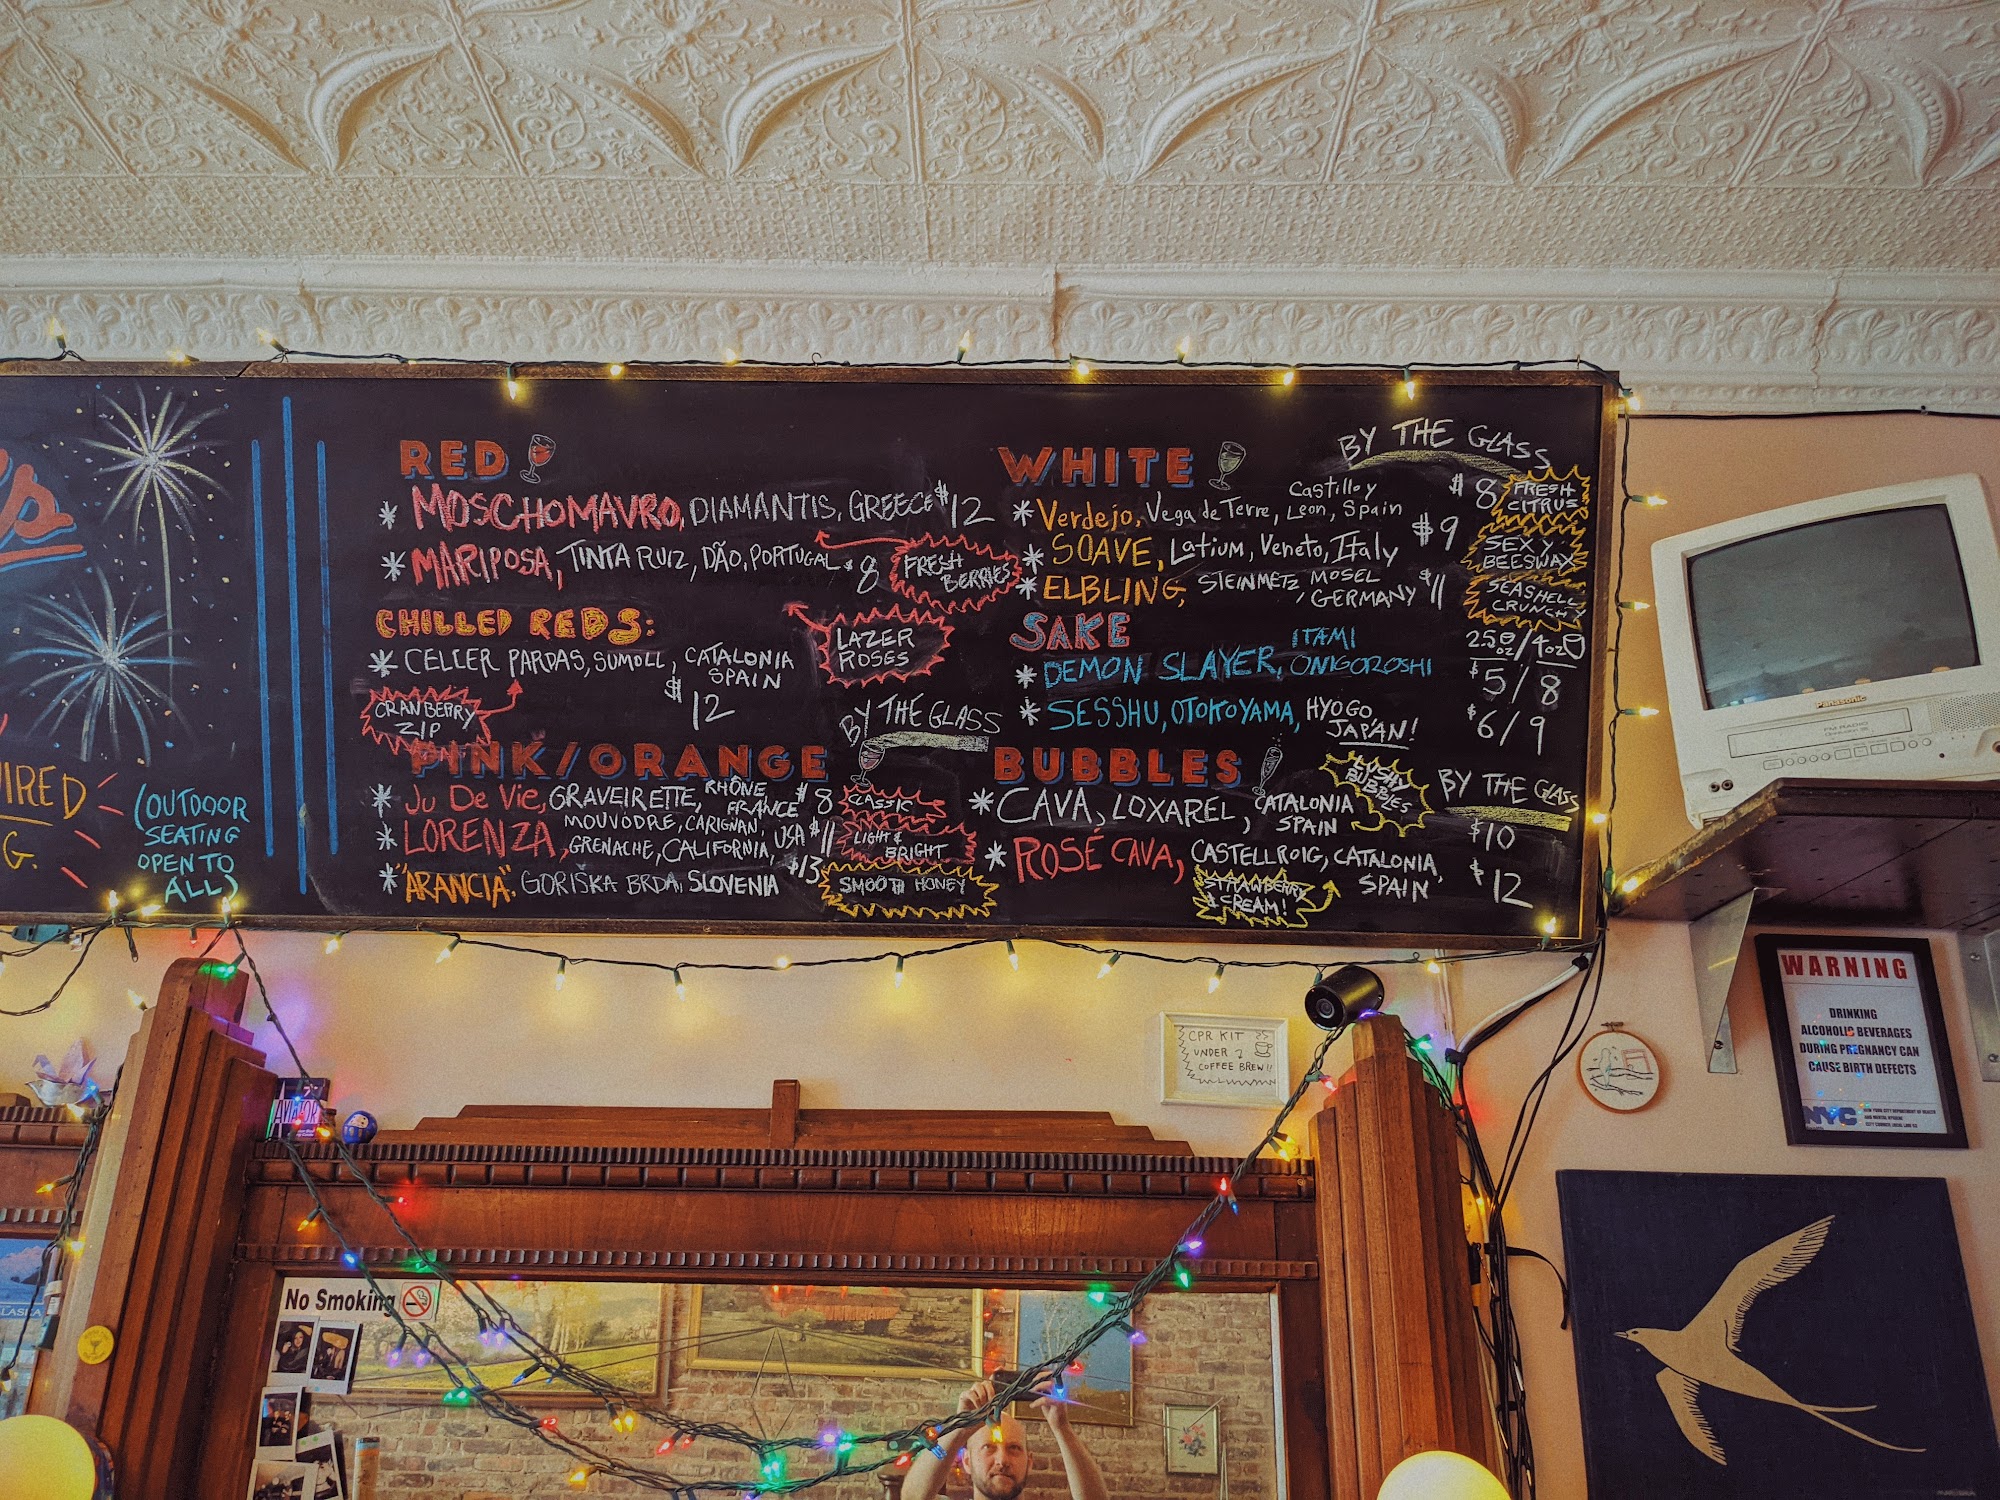 's
IRED
G.
(OUTDOOR
SEATING
OPEN TO
ALL)
RED
* MOSCHOMAVRO, DIAMANTIS, GREECE $12
* MARIPOSA, TINTA RUIZ, DÃO, PORTUGAL $8
FRESH
BERRIES
LAZER
ROSES
CHILLED REDS:
* CELLER PARDAS, SUMOLL, CATALONIA
SPAIN
$12
CRANBERRY
ZIP
PINK/ORANGE
BY THE GLASS
* JU DE VIE, GRAVEIRETTE, RHÔNE
FRANCE $8
CLASSIC
* LORENZA, MOUVÒDRE, CARIGNAN,
GRENACHE, CALIFORNIA, USA $11
LIGHT &
BRIGHT
* "ARANCIA". GORIŠKA BRDA, SLOVENIA $13
SMOOTH HONEY
WHITE
BY THE GLASS
* Verdejo, Vega de Terre, Castillo y
Leon, Spain $8
FRESH
CITRUS
* SOAVE, Latium, Veneto, Italy $9
SEXY
BEESWAX
* ELBLING, STEINMETZ, MOSEL
GERMANY $11
SEASHELL
CRUNCH
SAKE
2.5oz/4oz
* DEMON SLAYER, ITAMI
ONIGOROSHI $5/8
* SESSHU, OTOKOYAMA, HYOGO,
JAPAN! $6/9
BUBBLES
BY THE GLASS
* CAVA, LOXAREL, CATALONIA
SPAIN $10
BUBBLES
* ROSÉ CAVA, CASTELLROIG, CATALONIA,
SPAIN $12
STRAWBERRY
& CREAM!
Panasonic
FM RADIO
CPR KIT
UNDER
COFFEE BREW!!
WARNING
DRINKING
ALCOHOLIC BEVERAGES
DURING PREGNANCY CAN
CAUSE BIRTH DEFECTS
NYC
NEW YORK CITY DEPARTMENT OF HEALTH
AND MENTAL HYGIENE
AVIATOR
No Smoking
LASKA